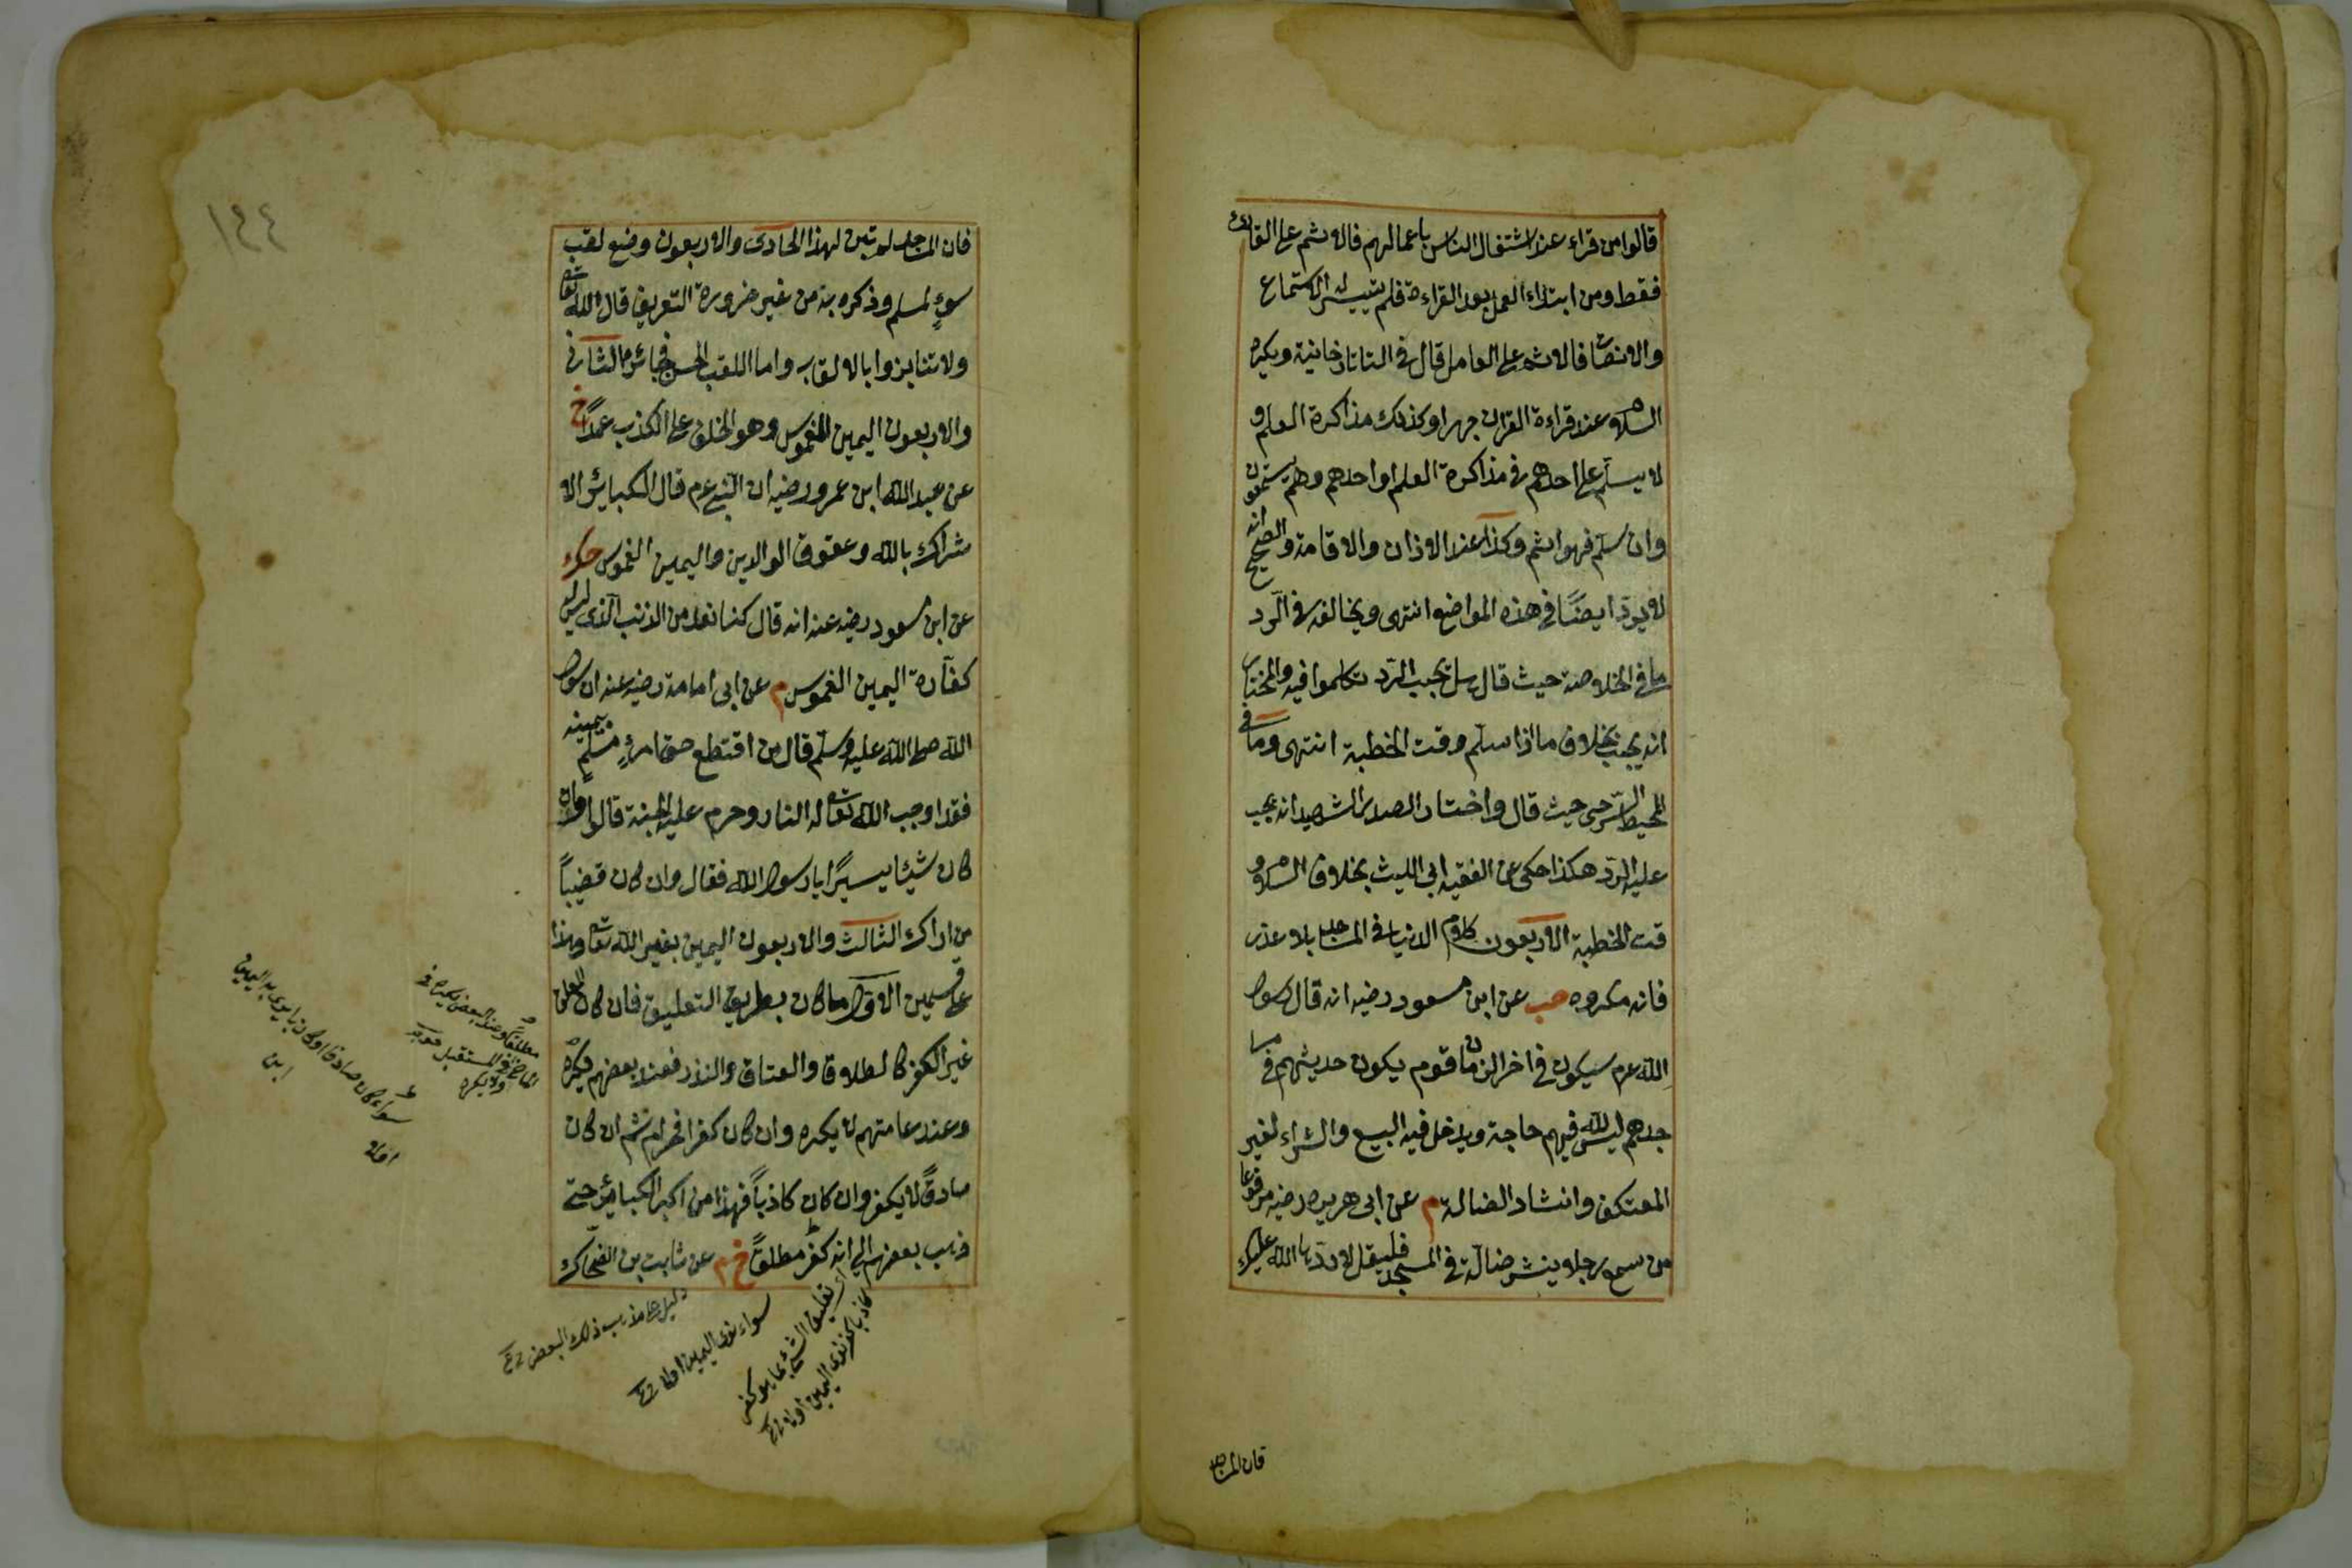 قالوا من قراء عند اشتغال الناس باعمالهم فالاثم على القارئ
فقط ومن ابتداء العمل بعد القراءة فلم يتيسر له الاستماع
والانصات فالاثم على العامل قال في التاتارخانية ويكره
السلام عند قراءة القران جهرا وكذلك مذاكرة العلم و
لا يسلم على احدهم في مذاكرة العلم او احدهم وهم يستمعون
وان سلم فهو اثم وكذا عند الاذان والاقامة والصحيح انه
لا يرد ايضًا في هذه المواضع انتهى ويخالفه في الرد
ما في الخلاصة حيث قال هل يجب الرد تكلموا فيه والمختار
انه يجب بخلاف ما اذا سلم وقت الخطبة انتهى وما في
المحيط السرخسي حيث قال واختار الصدر الشهيد انه يجب
عليه الرد هكذا حكى عن الفقيه ابي الليث بخلاف السلام و
قت الخطبة الاربعون كلام الدنيا في المساجد بلا عذر
فانه مكروه حب عن ابن مسعود رضيه انه قال رسول
الله عم سيكون في اخر الزمان قوم يكون حديثهم في مسا
جدهم ليس لله فيهم حاجة ويدخل فيه البيع والشراء لغير
المعتكف وانشاد الضالة م عن ابى هريره رضيه مرفوعا
من سمع رجلا ينشد ضالة في المسجد فليقل لا ردها الله عليك
فان المساجد
١٩٤
فان المساجد لم تبن لهذا الحادى والاربعون وضع لقب
سوءٍ لمسلم وذكره به من غير ضرورة التعريف قال الله تعالى
ولا تنابزوا بالالقاب واما اللقب الحسن فجائز الثانى
والاربعون اليمين الغموس وهو الحلف على الكذب عمدًا خ
عن عبد الله ابن عمرو رضيه ان النبي عم قال الكبائر الا
شراك بالله وعقوق الوالدين واليمين الغموس حك
عن ابن مسعود رضيه عنه انه قال كنا نعد من الذنب الذى ليس له
كفارة اليمين الغموس م عن ابى امامة رضيه عنه ان رسول
الله صلى الله عليه وسلم قال من اقتطع حق امرءٍ مسلمٍ بيمينه
فقد اوجب الله تعالى له النار وحرم عليه الجنة قالوا وان
كان شيئا يسيرًا يا رسول الله فقال وان كان قضيباً
من اراك الثالث والاربعون اليمين بغير الله تعالى وهذا
على قسمين الاول ما كان بطريق التعليق فان كان المعلق
غير الكفر كالطلاق والعتاق والنذر فعند بعضهم يكره
وعند عامتهم لا يكره وان كان كفرا فحرام ثم ان كان
صادقًا لا يكفر وان كان كاذبًا فهذا من اكبر الكبائر حتى
ذهب بعضهم الى انه كفر مطلقًا خ م عن ثابت بن الضحاك
سواء كان صادقا او كاذبا
سواء نوى اليمين اولا
دليل على مذهب ذلك البعض
تعليق الشئ بما هو كفر